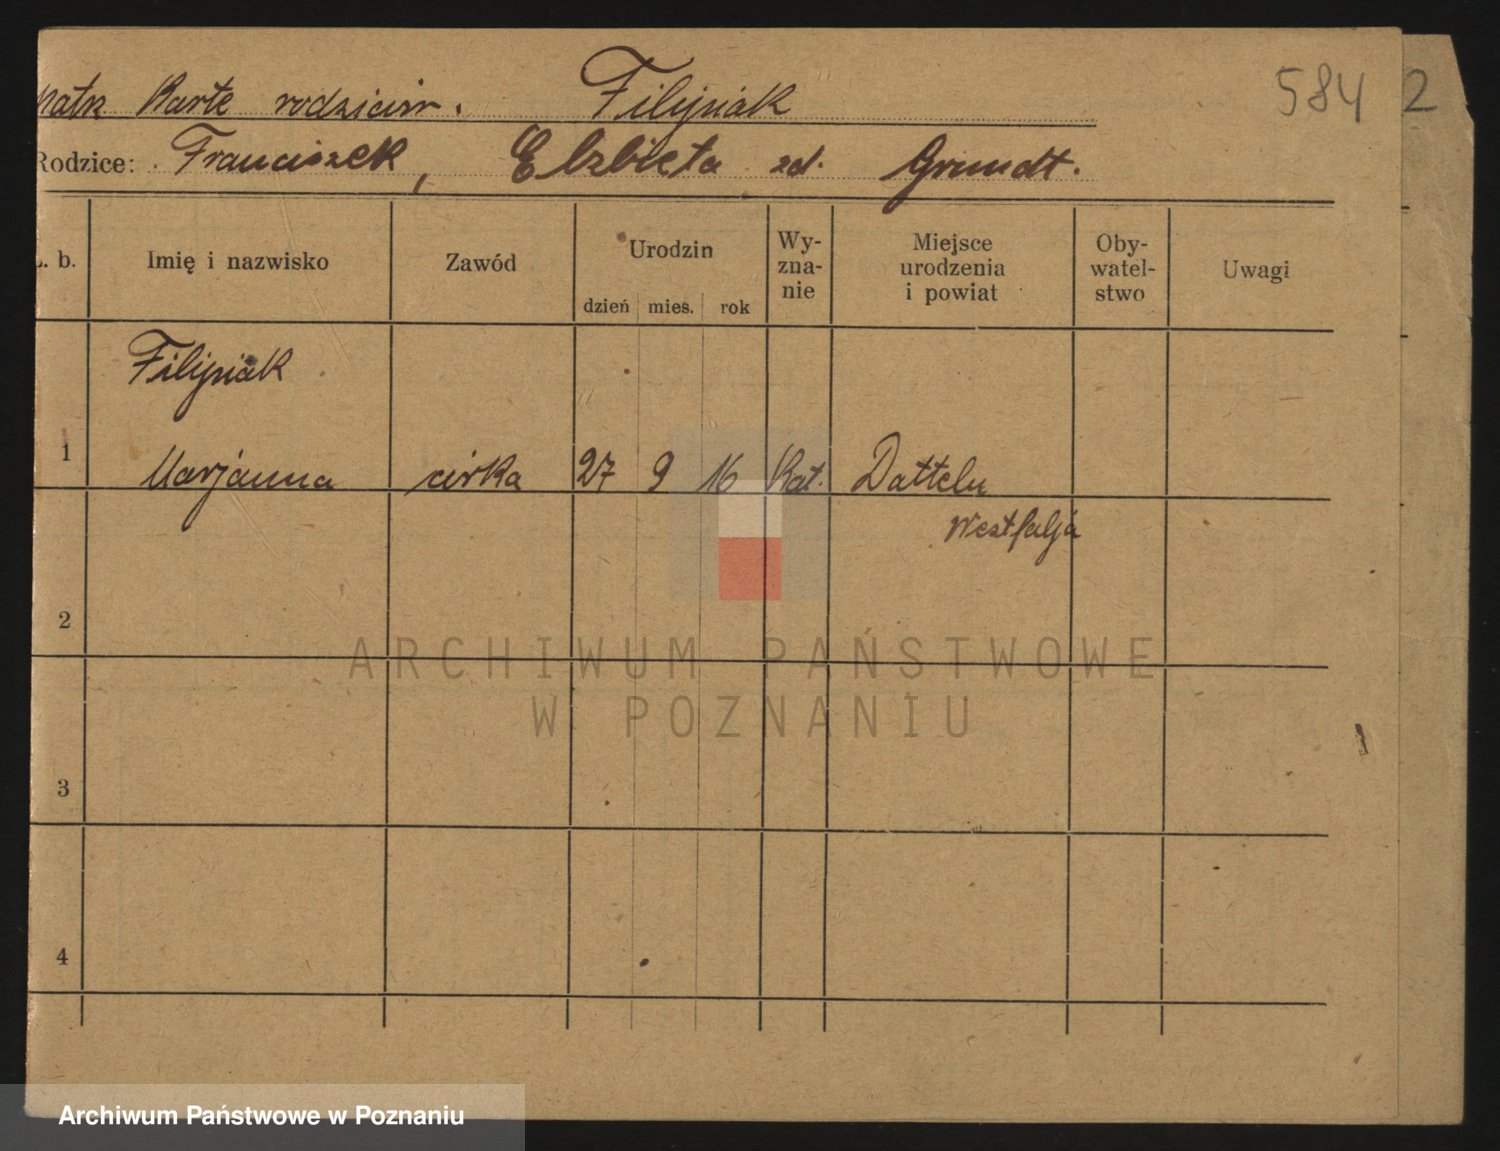 patrz Kartę rodziców. Filipiak 584 2
Rodzice: Franciszek, Elzbieta zd. Grundt.
L. b. Imię i nazwisko Zawód Urodzin dzień mies. rok Wy-zna-nie Miejsce urodzenia i powiat Oby-watel-stwo Uwagi
Filipiak
1 Marjanna córka 27 9 16 Kat. Datteln
Westfalja
2
ARCHIWUM PAŃSTWOWE
W POZNANIU
3
4
Archiwum Państwowe w Poznaniu